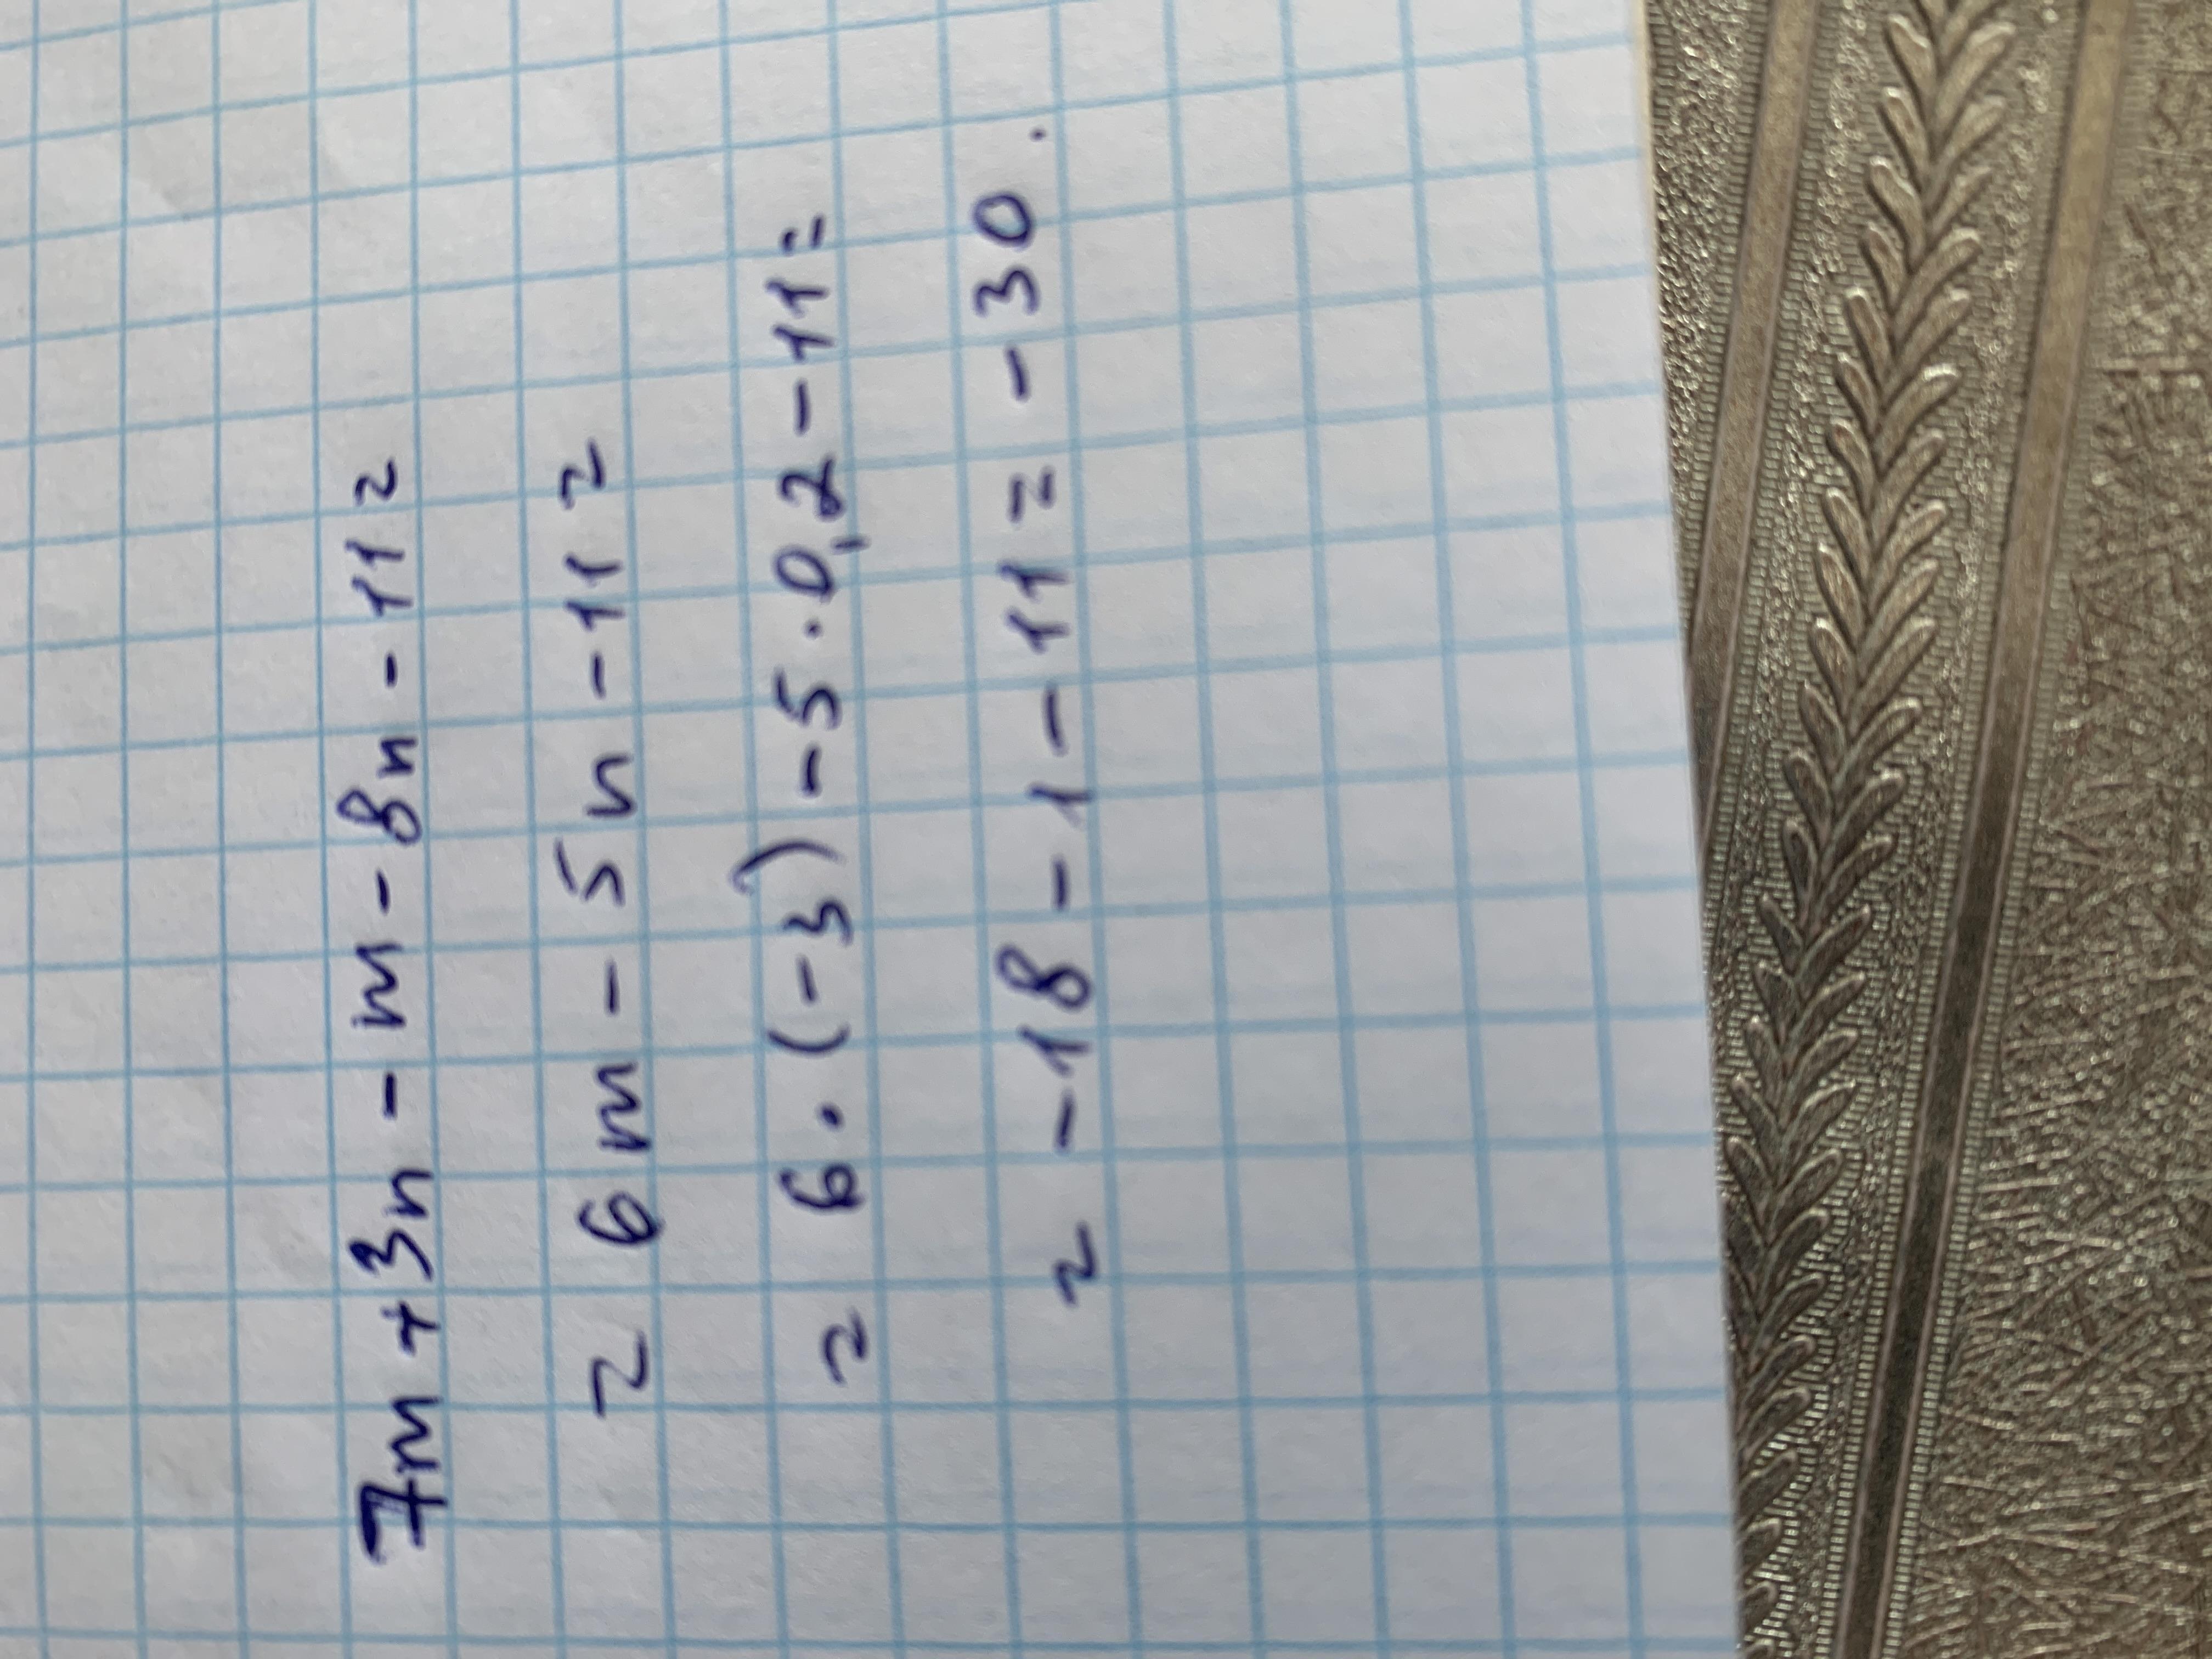 7m + 3n - m - 8n - 11 =
= 6m - 5n - 11 =
= 6 · (-3) - 5 · 0,2 - 11 =
= -18 - 1 - 11 = -30.